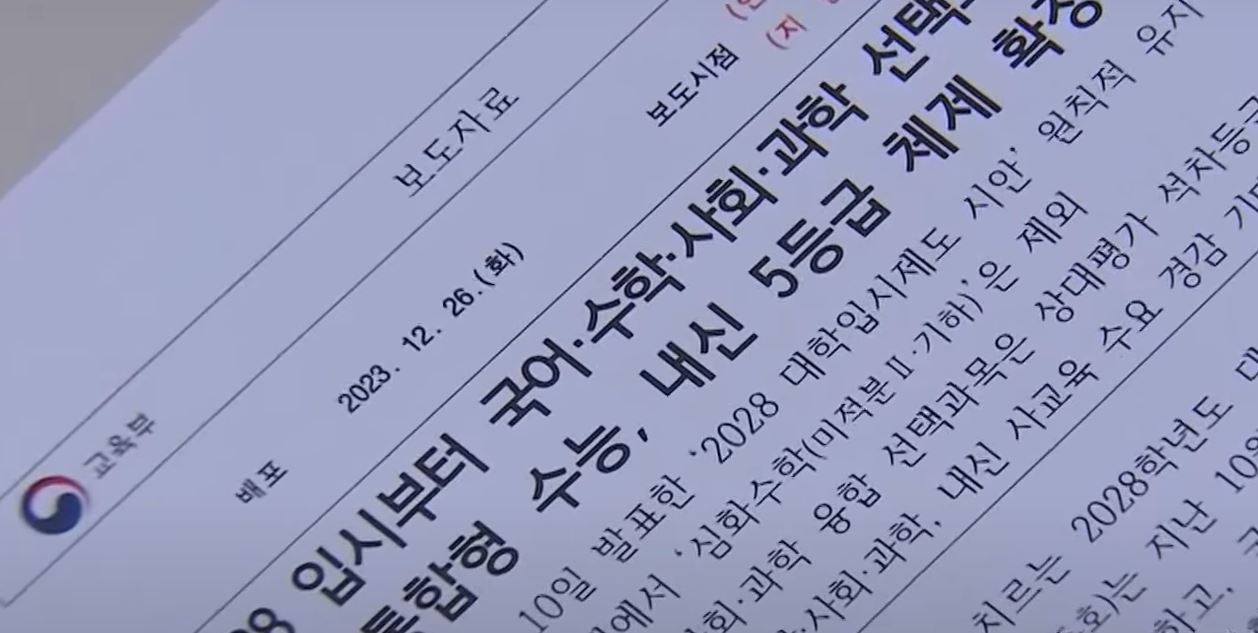 교육부
보도자료
배포 2023. 12. 26.(화) 보도시점
(지
입시부터 국어·수학·사회·과학
통합형 수능, 내신 5등급 체제 확정
10일 발표한 ‘2028 대학입시제도 시안’ 원칙적 유지
‘심화수학(미적분Ⅱ·기하)’은 제외
과학 융합 선택과목은 상대평가 석차등급
사회·과학, 내신 사교육 수요 경감
치르는 2028학년도
지난